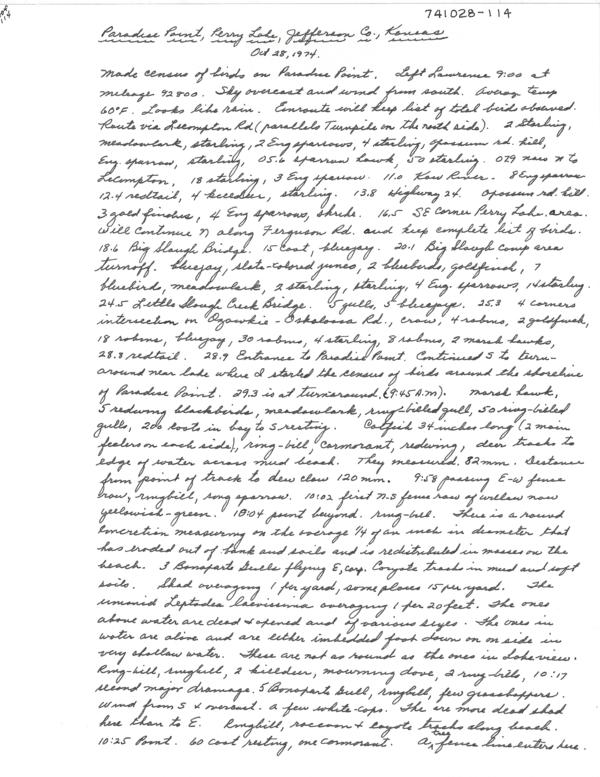 741028-114
Paradise Point, Perry Lake, Jefferson Co., Kansas
Oct 28, 1974.
Made census of birds on Paradise Point. Left Lawrence 9:00 at
mileage 92800. Sky overcast and wind from south. Averag temp
60°F. Looks like rain. Enroute will keep list of total birds observed.
Route via Lecompton Rd (parallels Turnpike on the north side). 2 Starling,
meadowlark, starling, 2 Eng sparrows, 4 starling, opossum rd. kill,
Eng. sparrow, starling, 05.6 sparrow hawk, 50 starling. 07.9 now N to
Lecompton, 18 starling, 3 Eng sparrow. 11.0 Kaw River. 8 Eng sparrow
12.4 redtail, 4 killdeer, starling. 13.8 Highway 24. Opossum rd. kill.
3 goldfinches, 4 Eng sparrows, shrike. 16.5 SE corner Perry Lake area.
Will continue N along Ferguson Rd. and keep complete list of birds.
18.6 Big Slough Bridge. 15 coot, bluejay. 20.1 Big Slough Camp area
turnoff. bluejay, slate-colored junco, 2 bluebirds, goldfinch, 7
bluebird, meadowlark, 2 starling, starling, 4 Eng. sparrows, 14 starling.
24.5 Little Slough Creek Bridge. 5 gulls, 5 bluejays. 25.3 4 corners
intersection on Ozawkie-Oskaloosa Rd., crow, 4 robins, 2 goldfinch,
18 robins, bluejay, 30 robins, 4 starling, 8 robins, 2 marsh hawks,
28.3 redtail. 28.9 Entrance to Paradise Point. Continued S to turn-
around near lake where I started the census of birds around the shoreline
of Paradise Point. 29.3 is at turnaround. (9:45 A.M). Marsh hawk,
5 redwing blackbirds, meadowlark, ring-billed gull, 50 ring-billed
gulls, 200 coots in bay to S resting. Catfish 34 inches long (2 main
feelers on each side), ring-bill, cormorant, redwing, deer tracks to
edge of water across mud beach. They measured 82mm. Distance
from point of track to dew claw 120 mm. 9:58 passing E-W fence
row, ringbill, song sparrow. 10:02 first N-S fence row of willow now
yellowish-green. 10:04 point beyond. ring-bill. There is a round
concretion measuring on the average 1/4 of an inch in diameter that
has eroded out of bank and soils and is redistributed in masses on the
beach. 3 Bonaparts Gulls flying E, carp. Coyote tracks in mud and soft
soils. Shad averaging 1 per yard, some places 15 per yard. The
unionid Leptodea laevissima averaging 1 per 20 feet. The ones
above water are dead & opened and of various sizes. The ones in
water are alive and are either imbedded foot down or on side in
very shallow water. These are not as round as the ones in Lakeview.
Ring-bill, ringbill, 2 killdeer, mourning dove, 2 ring-bills, 10:17
second major drainage. 5 Bonaparts Gull, ringbill, few grasshoppers.
Wind from S & overcast. A few white-caps. The are more dead shad
here than to E. Ringbill, raccoon & coyote tracks along beach.
10:25 Point. 60 coot resting, one cormorant. A tree fence line enters here.